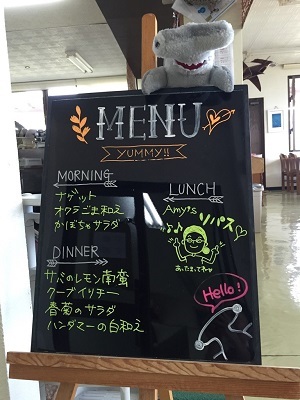 MENU
YUMMY!!
MORNING
ナゲット
オクラごま和え
かぼちゃサラダ
LUNCH
Amy's
リパス
あったまってネ
DINNER
サバのレモン南蛮
クーブイリチー
春菊のサラダ
ハンダマーの白和え
Hello!